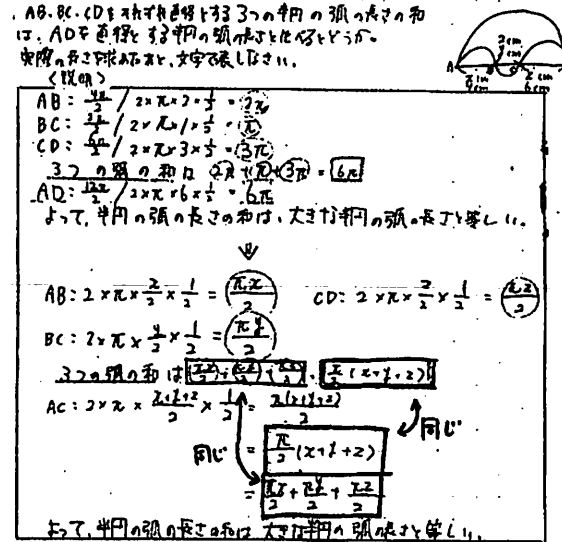 AB.BC.CDをそれぞれ直径とする3つの半円の弧の長さの和
は、ADを直径とする半円の弧の長さと比べるとどうか。
実際の長さを求めたあと、文字で表しなさい。
2cm
A
4cm
6cm
(説明)
AB: 4π/2 / 2×π×2×1/2 = 2π
BC: 2π/2 / 2×π×1×1/2 = π
CD: 6π/2 / 2×π×3×1/2 = 3π
3つの弧の和は 2π+π+3π = 6π
AD: 12π/2 / 2×π×6×1/2 = 6π
よって、半円の弧の長さの和は、大きな半円の弧の長さと等しい。
AB: 2×π×x/2×1/2 = πx/2 CD: 2×π×z/2×1/2 = πz/2
BC: 2×π×y/2×1/2 = πy/2
3つの弧の和は πx/2+πy/2+πz/2 . π/2(x+y+z)
AC: 2×π×x+y+z/2×1/2 = π(x+y+z)/2
同じ
同じ
= π/2(x+y+z)
= πx/2+πy/2+πz/2
よって、半円の弧の長さの和は 大きな半円の弧の長さと等しい。